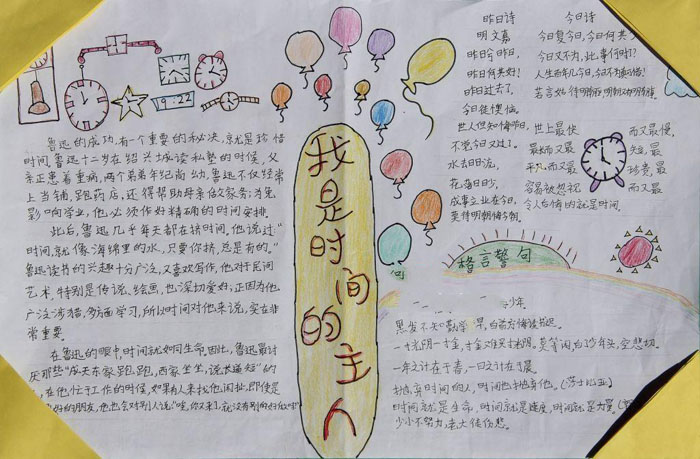 9:22
鲁迅的成功,有一个重要的秘决,就是珍惜
时间,鲁迅十二岁在绍兴城读私塾的时候,父
亲正患着重病,两个弟弟年纪尚幼,鲁迅不仅经常
上当铺,跑药店,还得帮助母亲做家务;为免
影响学业,他必须作好精确的时间安排.
此后,鲁迅几乎每天都在挤时间,他说过"
时间,就像海绵里的水,只要你挤,总是有的."
鲁迅读书的兴趣十分广泛,又喜欢写作,他对于民间
艺术,特别是传说、绘画,也深切爱好;正因为他
广泛涉猎,多方面学习,所以时间对他来说,实在非
常重要.
在鲁迅的眼中,时间就如同生命.因此,鲁迅最讨
厌那些"成天东家跑跑,西家坐坐,说长道短"的
,在他忙于工作的时候,如果有人来找他闲扯,即使是
好的朋友,他也会对别人说:
我是时间的主人
昨日诗
明 文嘉
昨日兮昨日,
昨日何其好!
昨日过去了,
今日徒懊恼.
世人但知悔昨日,
不觉今日又过了.
水去日日流,
花落日日少,
成事立业在今日,
莫待明朝悔今朝.
今日诗
今日复今日,今日何其少
今日又不为,此事何时了?
人生百年几今日,今日不为真可惜!
若言姑待明朝至,明朝又有明朝事.
世上最快 而又最慢,
最长而又最 短,最
平凡而又最 珍贵,最
容易被忽视 而又最
令人后悔的就是时间.
格言警句
少年.
黑发不知勤学早,白首方悔读书迟.
一寸光阴一寸金,寸金难买寸光阴.莫等闲白了少年头,空悲切.
一年之计在于春,一日之计在于晨.
抛弃时间的人,时间也抛弃他.(莎士比亚)
时间就是生命,时间就是速度,时间就是力量.
少小不努力,老大徒伤悲.